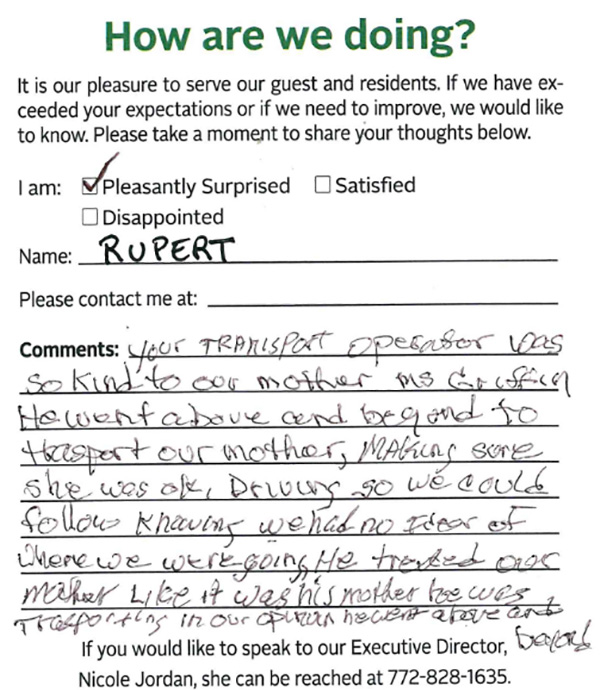 How are we doing?
It is our pleasure to serve our guest and residents. If we have ex-
ceeded your expectations or if we need to improve, we would like
to know. Please take a moment to share your thoughts below.
I am: Pleasantly Surprised Satisfied
Disappointed
Name: RUPERT
Please contact me at:
Comments: your TRANSPORT operator was
so Kind to our mother ms Griffin
He went above and beyond to
trasport our mother, MAKing sure
she was ok, Driving so we could
follow Knowing we had no Idea of
where we were going, He treated our
mother Like it was his mother he was
Trasporting in our opinion he went above and
beyond
If you would like to speak to our Executive Director,
Nicole Jordan, she can be reached at 772-828-1635.